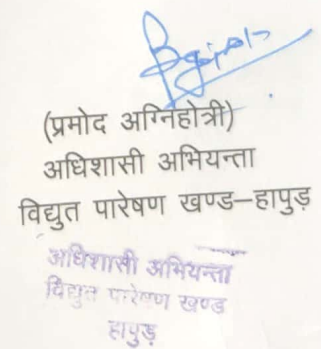 (प्रमोद अग्निहोत्री)
अधिशासी अभियन्ता
विद्युत पारेषण खण्ड–हापुड़
अधिशासी अभियन्ता
विद्युत पारेषण खण्ड
हापुड़